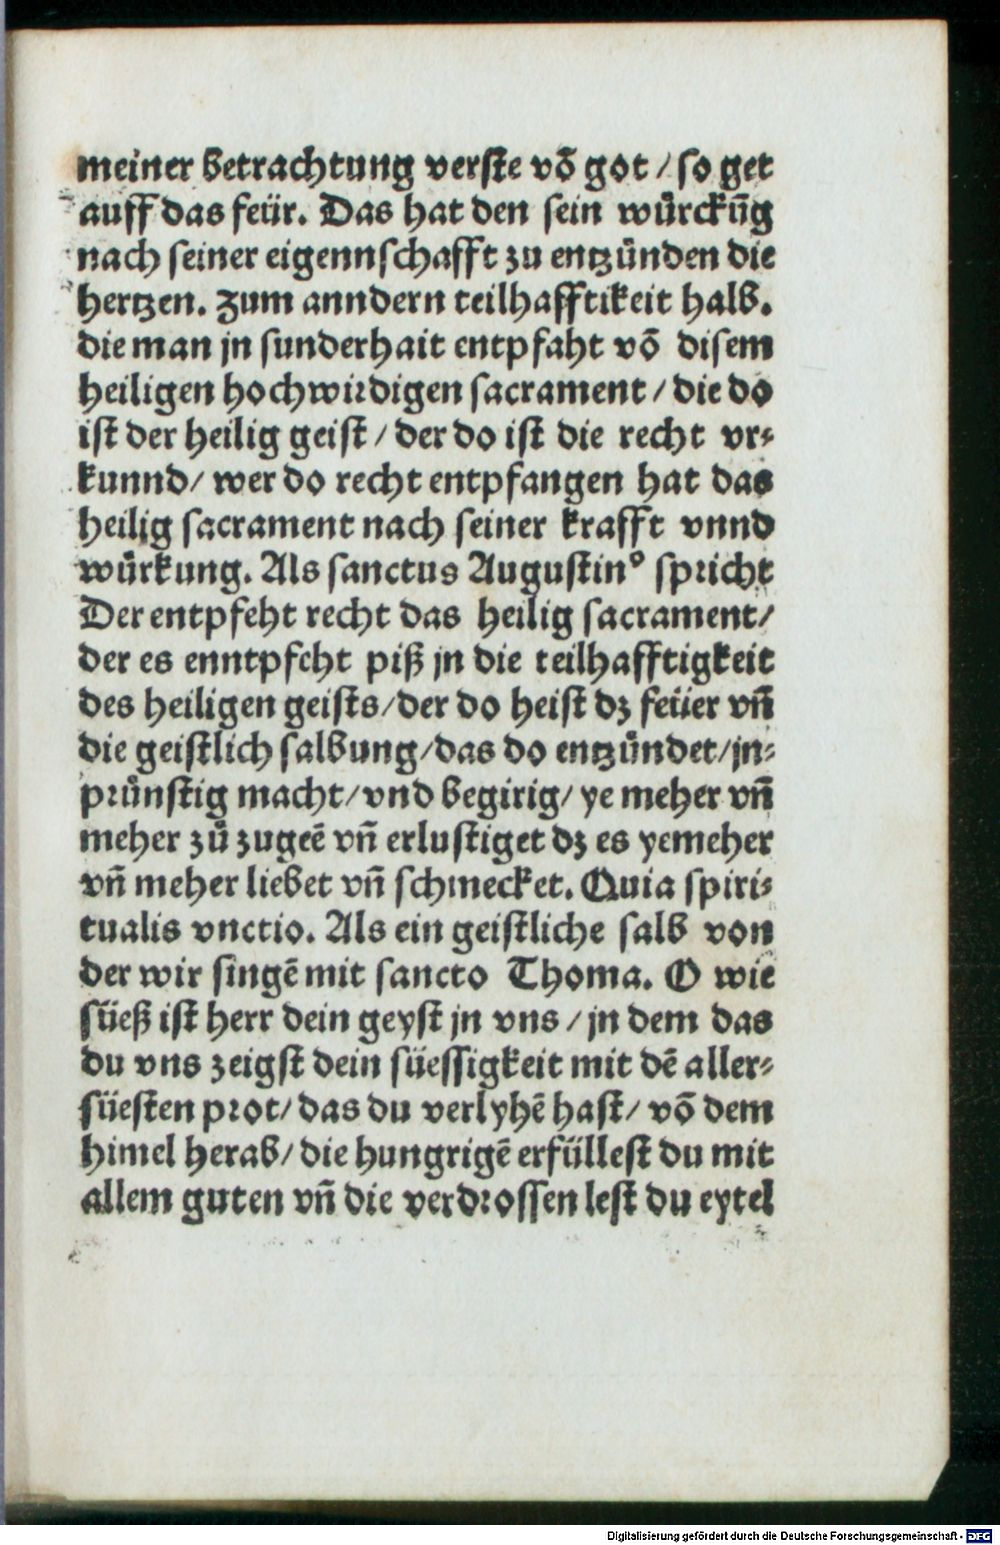 meiner betrachtung verste võ got / so get
auff das feür. Das hat den sein würckũg
nach seiner eigennschafft zu entzünden die
hertzen. Zum anndern teilhafftikeit halb.
die man jn sunderhait entpfaht võ disem
heiligen hochwirdigen sacrament / die do
ist der heilig geist / der do ist die recht vr⸗
kunnd / wer do recht entpfangen hat das
heilig sacrament nach seiner krafft vnnd
würkung. Als sanctus Augustinꝰ spricht
Der entpfeht recht das heilig sacrament /
der es enntpfcht piß jn die teilhafftigkeit
des heiligen geists / der do heist dz feüer vñ
die geistlich salbung / das do entzündet / jn⸗
prünstig macht / vnd begirig / ye meher vñ
meher zů zugeẽ vñ erlustiget dz es yemeher
vñ meher liebet vñ schmecket. Quia spiri⸗
tualis vnctio. Als ein geistliche salb von
der wir singẽ mit sancto Thoma. O wie
süeß ist herr dein geyst jn vns / jn dem das
du vns zeigst dein süessigkeit mit dẽ aller⸗
süesten prot / das du verlyhẽ hast / võ dem
himel herab / die hungrigẽ erfüllest du mit
allem guten vñ die verdrossen lest du eytel
Digitalisierung gefördert durch die Deutsche Forschungsgemeinschaft - DFG